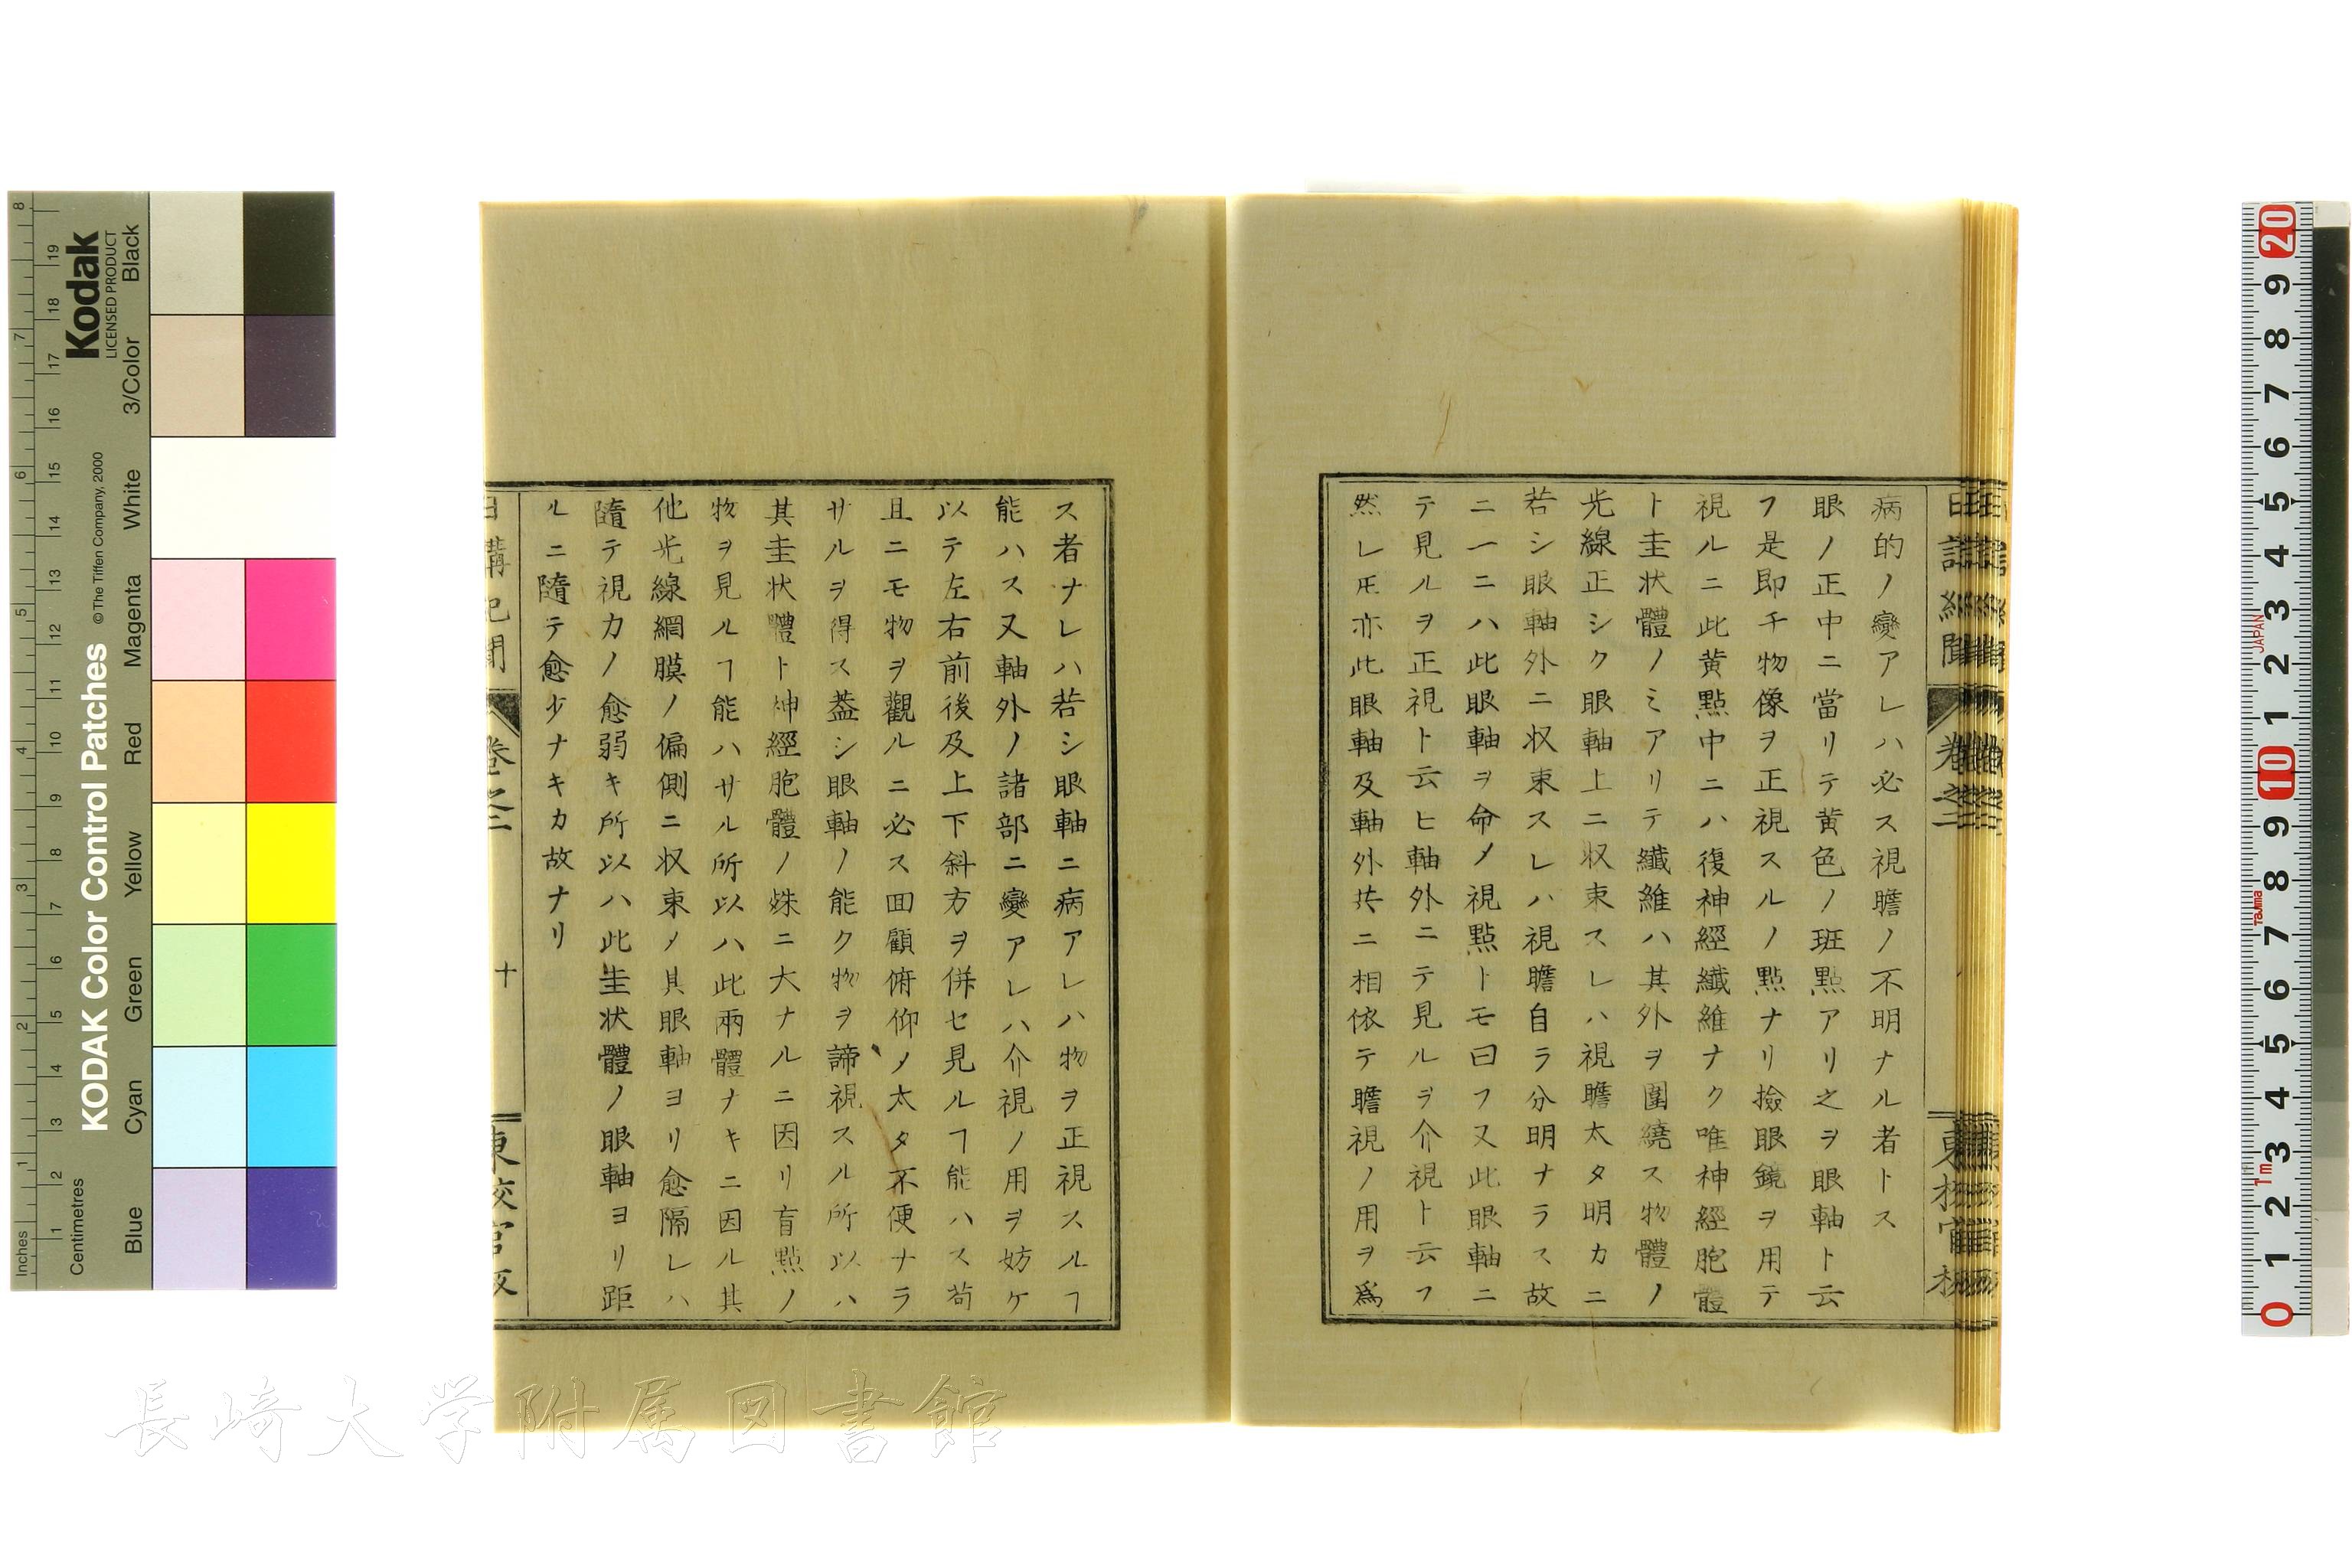 病的ノ變アレハ必ス視瞻ノ不明ナル者トス
眼ノ正中ニ當リテ黄色ノ班點アリ之ヲ眼軸ト云
フ是即チ物像ヲ正視スルノ點ナリ撿眼鏡ヲ用テ
視ルニ此黄點中ニハ復神經纖維ナク唯神經胞體
ト圭状體ノミアリテ纖維ハ其外ヲ圍繞ス物體ノ
光線正シク眼軸上ニ収束スレハ視瞻太タ明カニ
若シ眼軸外ニ収束スレハ視瞻自ラ分明ナラス故
ニ一ニハ此眼軸ヲ命メ視點トモ曰フ又此眼軸ニ
テ見ルヲ正視ト云ヒ軸外ニテ見ルヲ介視ト云フ
然レ𪜈亦此眼軸及軸外共ニ相依テ瞻視ノ用ヲ爲
ス者ナレハ若シ眼軸ニ病アレハ物ヲ正視スルヿ
能ハス又軸外ノ諸部ニ變アレハ介視ノ用ヲ妨ケ
以テ左右前後及上下斜方ヲ併セ見ルヿ能ハス苟
且ニモ物ヲ觀ルニ必ス回顧俯仰ノ太タ不便ナラ
サルヲ得ス葢シ眼軸ノ能ク物ヲ諦視スル所以ハ
其圭状體ト神經胞體ノ殊ニ大ナルニ因リ盲點ノ
物ヲ見ルヿ能ハサル所以ハ此兩體ナキニ因ル其
他光線網膜ノ偏側ニ収束メ其眼軸ヨリ愈隔レハ
隨テ視力ノ愈弱キ所以ハ此圭状體ノ眼軸ヨリ距
ルニ隨テ愈少ナキカ故ナリ
日講記聞 卷之二 十 東校官版
KODAK Color Control Patches
©The Tiffen Company, 2000
Kodak
LICENSED PRODUCT
Inches
Centimetres
Blue
Cyan
Green
Yellow
Red
Magenta
White
3/Color
Black
長崎大学附属図書館
JAPAN
Tajima
1m